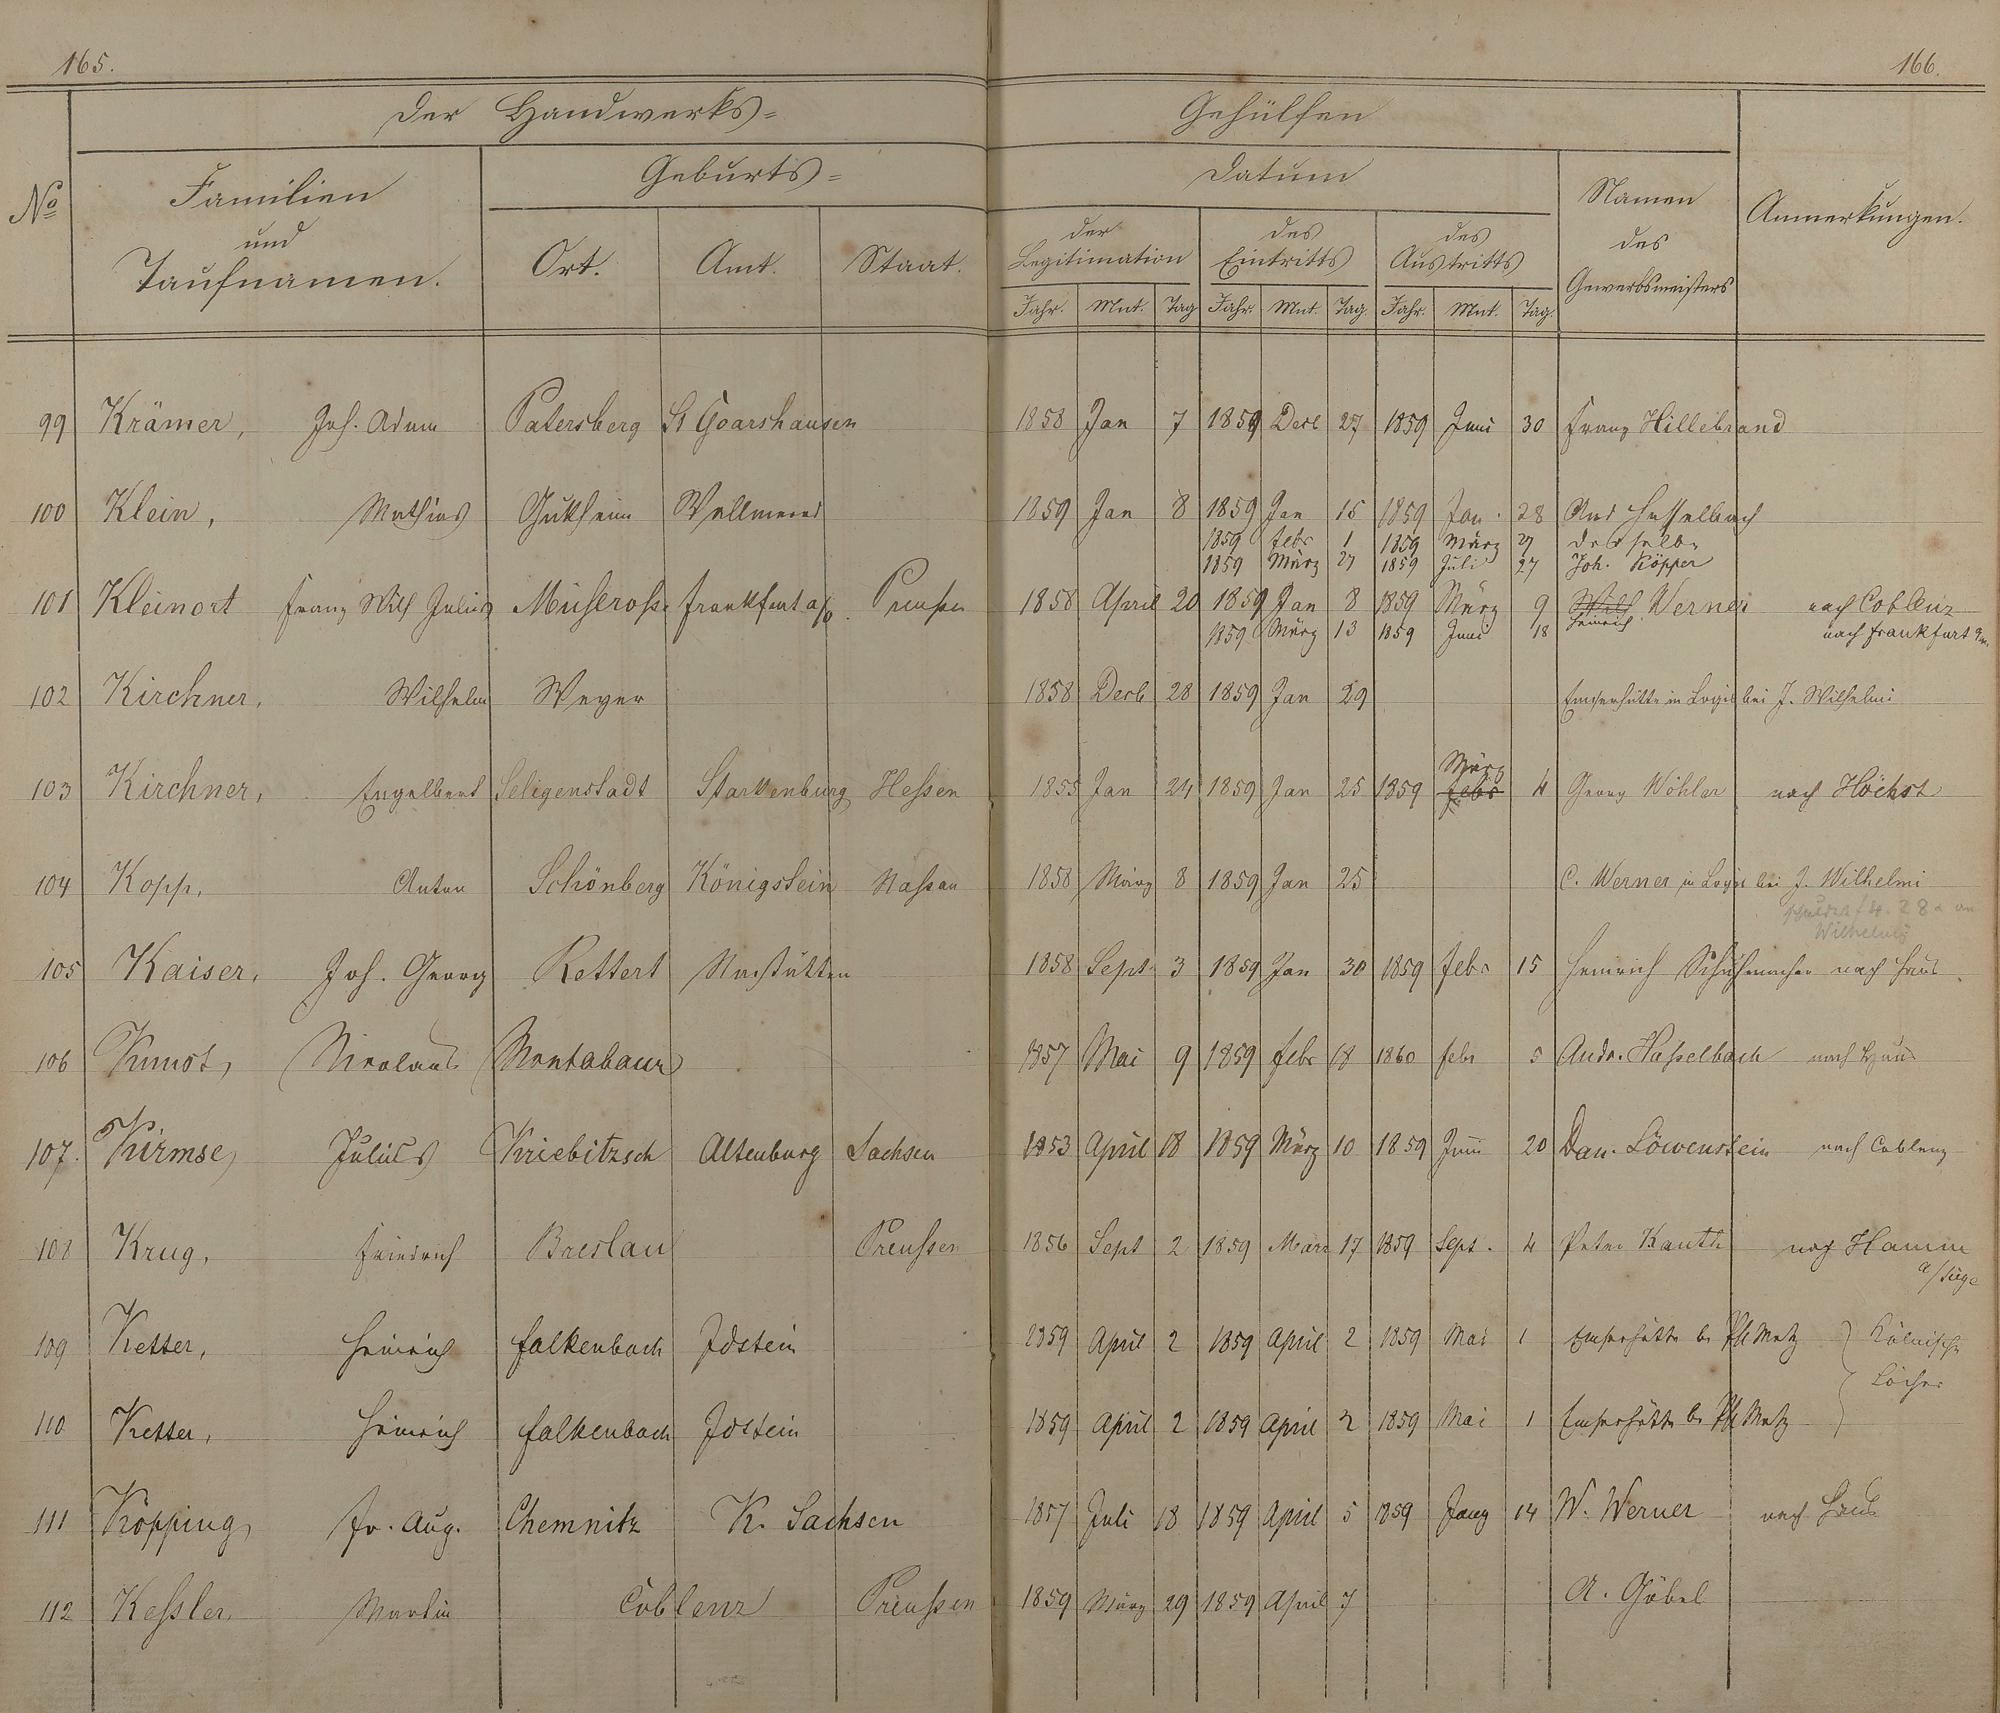 165.
166.
Der Handwerks= Gehülfen
No
Familien und Taufnamen.
Geburts=
Ort. Amt. Staat.
Datum
der Legitimation
des Eintritts
des Austritts
Jahr. Mnt. Tag Jahr. Mnt. Tag. Jahr. Mnt. Tag.
Namen des Gewerbsmeisters
Anmerkungen.
99 Krämer, Joh. Adam Patersberg St Goarshausen 1858 Jan 7 1859 Decb 27 1859 Juni 30 Franz Hillebrand
100 Klein, Mathias Gukheim Wallmerod 1859 Jan 8 1859 Jan 15 1859 Jan. 28 And Hasselbach
1859 Febr 1 1859 März 27 derselbe
1859 März 27 1859 Juli 27 Joh. Köpper
101 Kleinort Franz Wilh Julius Müllrose Frankfurt a/o. Preußen 1858 April 20 1859 Jan 8 1859 März 9 Wilh Werner nach Coblenz
Heinrich
1859 März 13 1859 Juni 18 nach Frankfurt a/m.
102 Kirchner, Wilhelm Weyer 1858 Decb 28 1859 Jan 29 Emserhütte in Logis bei J. Wilhelmi
März
103 Kirchner, Engelbert Seligenstadt Starkenburg Hessen 1855 Jan 24 1859 Jan 25 1859 Febr 4 Georg Wöhler nach Höchst
104 Kopp, Anton Schönberg Königstein Nassau 1858 März 8 1859 Jan 25 C. Werner in Logis bei J. Wilhelmi
schuldet f 4. 28 x an
Wilhelmi
105 Kaiser, Joh. Georg Rettert Nastätten 1858 Sept. 3 1859 Jan 30 1859 Febr 15 Heinrich Schuhmacher nach Haus.
106 Kunst, Nicolaus Montabaur 1857 Mai 9 1859 Febr 18 1860 Febr 5 Andr. Hasselbach nach Haus
107. Kirmse, Julius Kriebitzsch Altenburg Sachsen 1853 April 18 1859 März 10 1859 Juni 20 Dan. Löwenstein nach Coblenz
108 Krug, Friedrich Breslau Preussen 1856 Sept 2 1859 März 17 1859 Sept. 4 Peter Kauth nach Hamm
a/Sieg
109 Ketter, Heinrich Falkenbach Idstein 2859 April 2 1859 April 2 1859 Mai 1 Emserhütte b. Ph Metz Kölnische
Löcher
110 Ketter, Heinrich Falkenbach Idstein 1859 April 2 1859 April 2 1859 Mai 1 Emserhütte b. Ph Metz
111 Köpping, Fr. Aug. Chemnitz K. Sachsen 1857 Juli 18 1859 April 5 1859 14 W. Werner nach Haus
112 Kessler, Martin Coblenz Preussen 1859 März 29 1859 April 7 A. Göbel